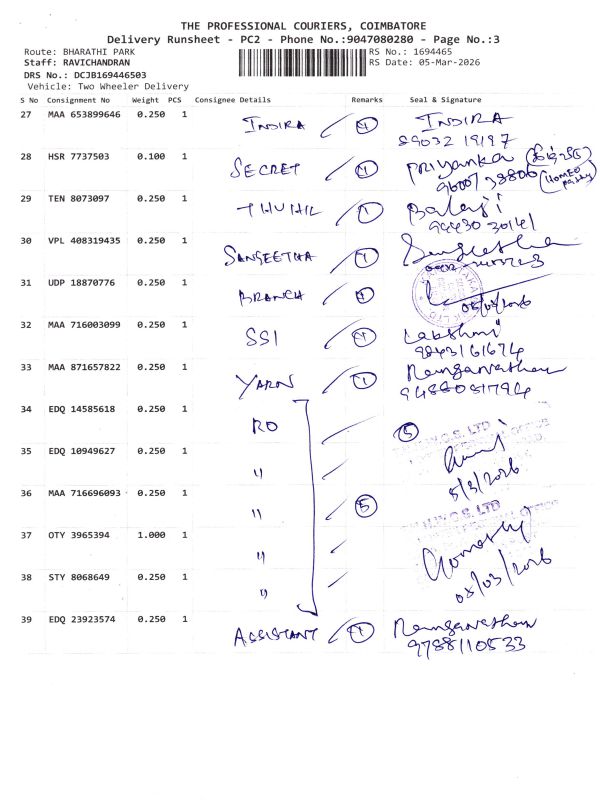 THE PROFESSIONAL COURIERS, COIMBATORE
Delivery Runsheet - PC2 - Phone No.:9047080280 - Page No.:3
Route: BHARATHI PARK
RS No.: 1694465
Staff: RAVICHANDRAN
RS Date: 05-Mar-2026
DRS No.: DCJB169446503
Vehicle: Two Wheeler Delivery
S No Consignment No Weight PCS Consignee Details Remarks Seal & Signature
27 MAA 653899646 0.250 1 INDIRA 1 INDIRA
89032 19197
28 HSR 7737503 0.100 1 SECRET 1 Priyanka
9600738806 (HOMEO
29 TEN 8073097 0.250 1 1 Balaji
94430 30141
30 VPL 408319435 0.250 1 SANGEETHA 1 Sangeetha
31 UDP 18870776 0.250 1 BRANCH 1
05/03/2026
32 MAA 716003099 0.250 1 SSI 1 Lakshmi
9843161674
33 MAA 871657822 0.250 1 YARN 1 Ranganathan
9488081794
34 EDQ 14585618 0.250 1 RO 5
35 EDQ 10949627 0.250 1 "
5/3/2026
36 MAA 716696093 0.250 1 " 5
37 OTY 3965394 1.000 1 "
38 STY 8068649 0.250 1 "
05/03/2026
39 EDQ 23923574 0.250 1 ASSISTANT 1 Ranganathan
9788110533